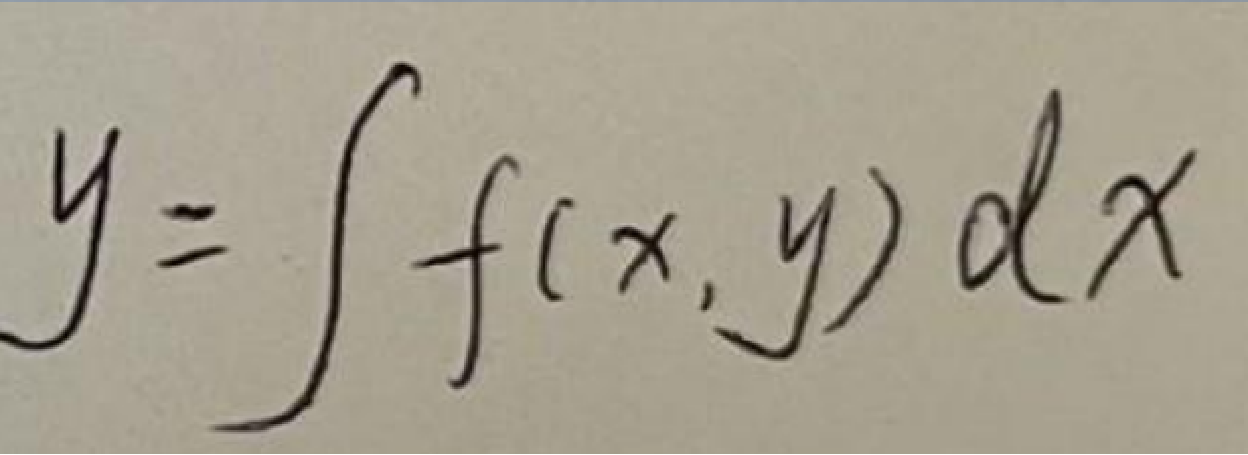 y = ∫ f(x, y) dx